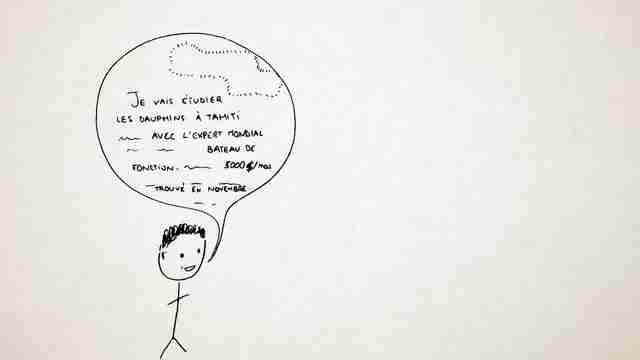 JE VAIS ÉTUDIER
LES DAUPHINS À TAHITI
AVEC L'EXPERT MONDIAL
BATEAU DE
FONCTION. 5000 $/mois
TROUVÉ EN NOVEMBRE